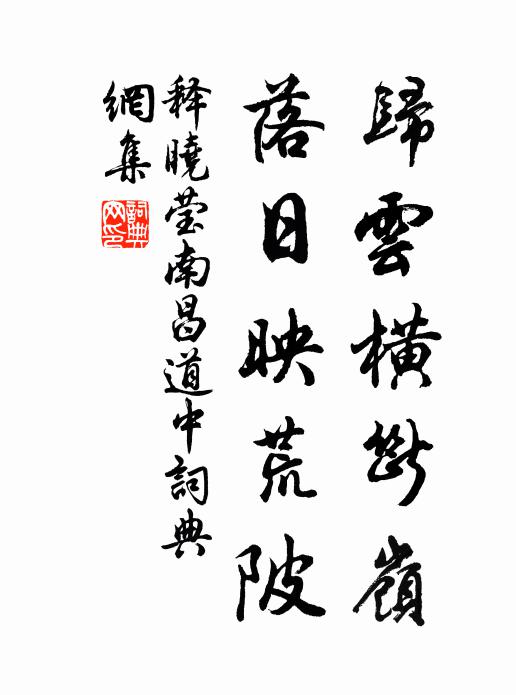 歸雲橫斷嶺
落日映荒陂
释曉莹南昌道中詞典
網集
詞典網印